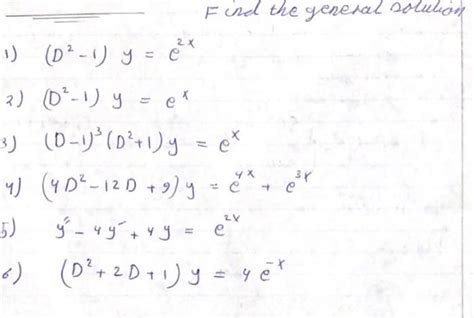 Find the general solution
1) (D² - 1) y = e^{2x}
2) (D² - 1) y = e^{x}
3) (D - 1)³ (D² + 1) y = e^{x}
4) (4D² - 12D + 9) y = e^{4x} + e^{3x}
5) y'' - 4y' + 4y = e^{2x}
6) (D² + 2D + 1) y = 4 e^{-x}